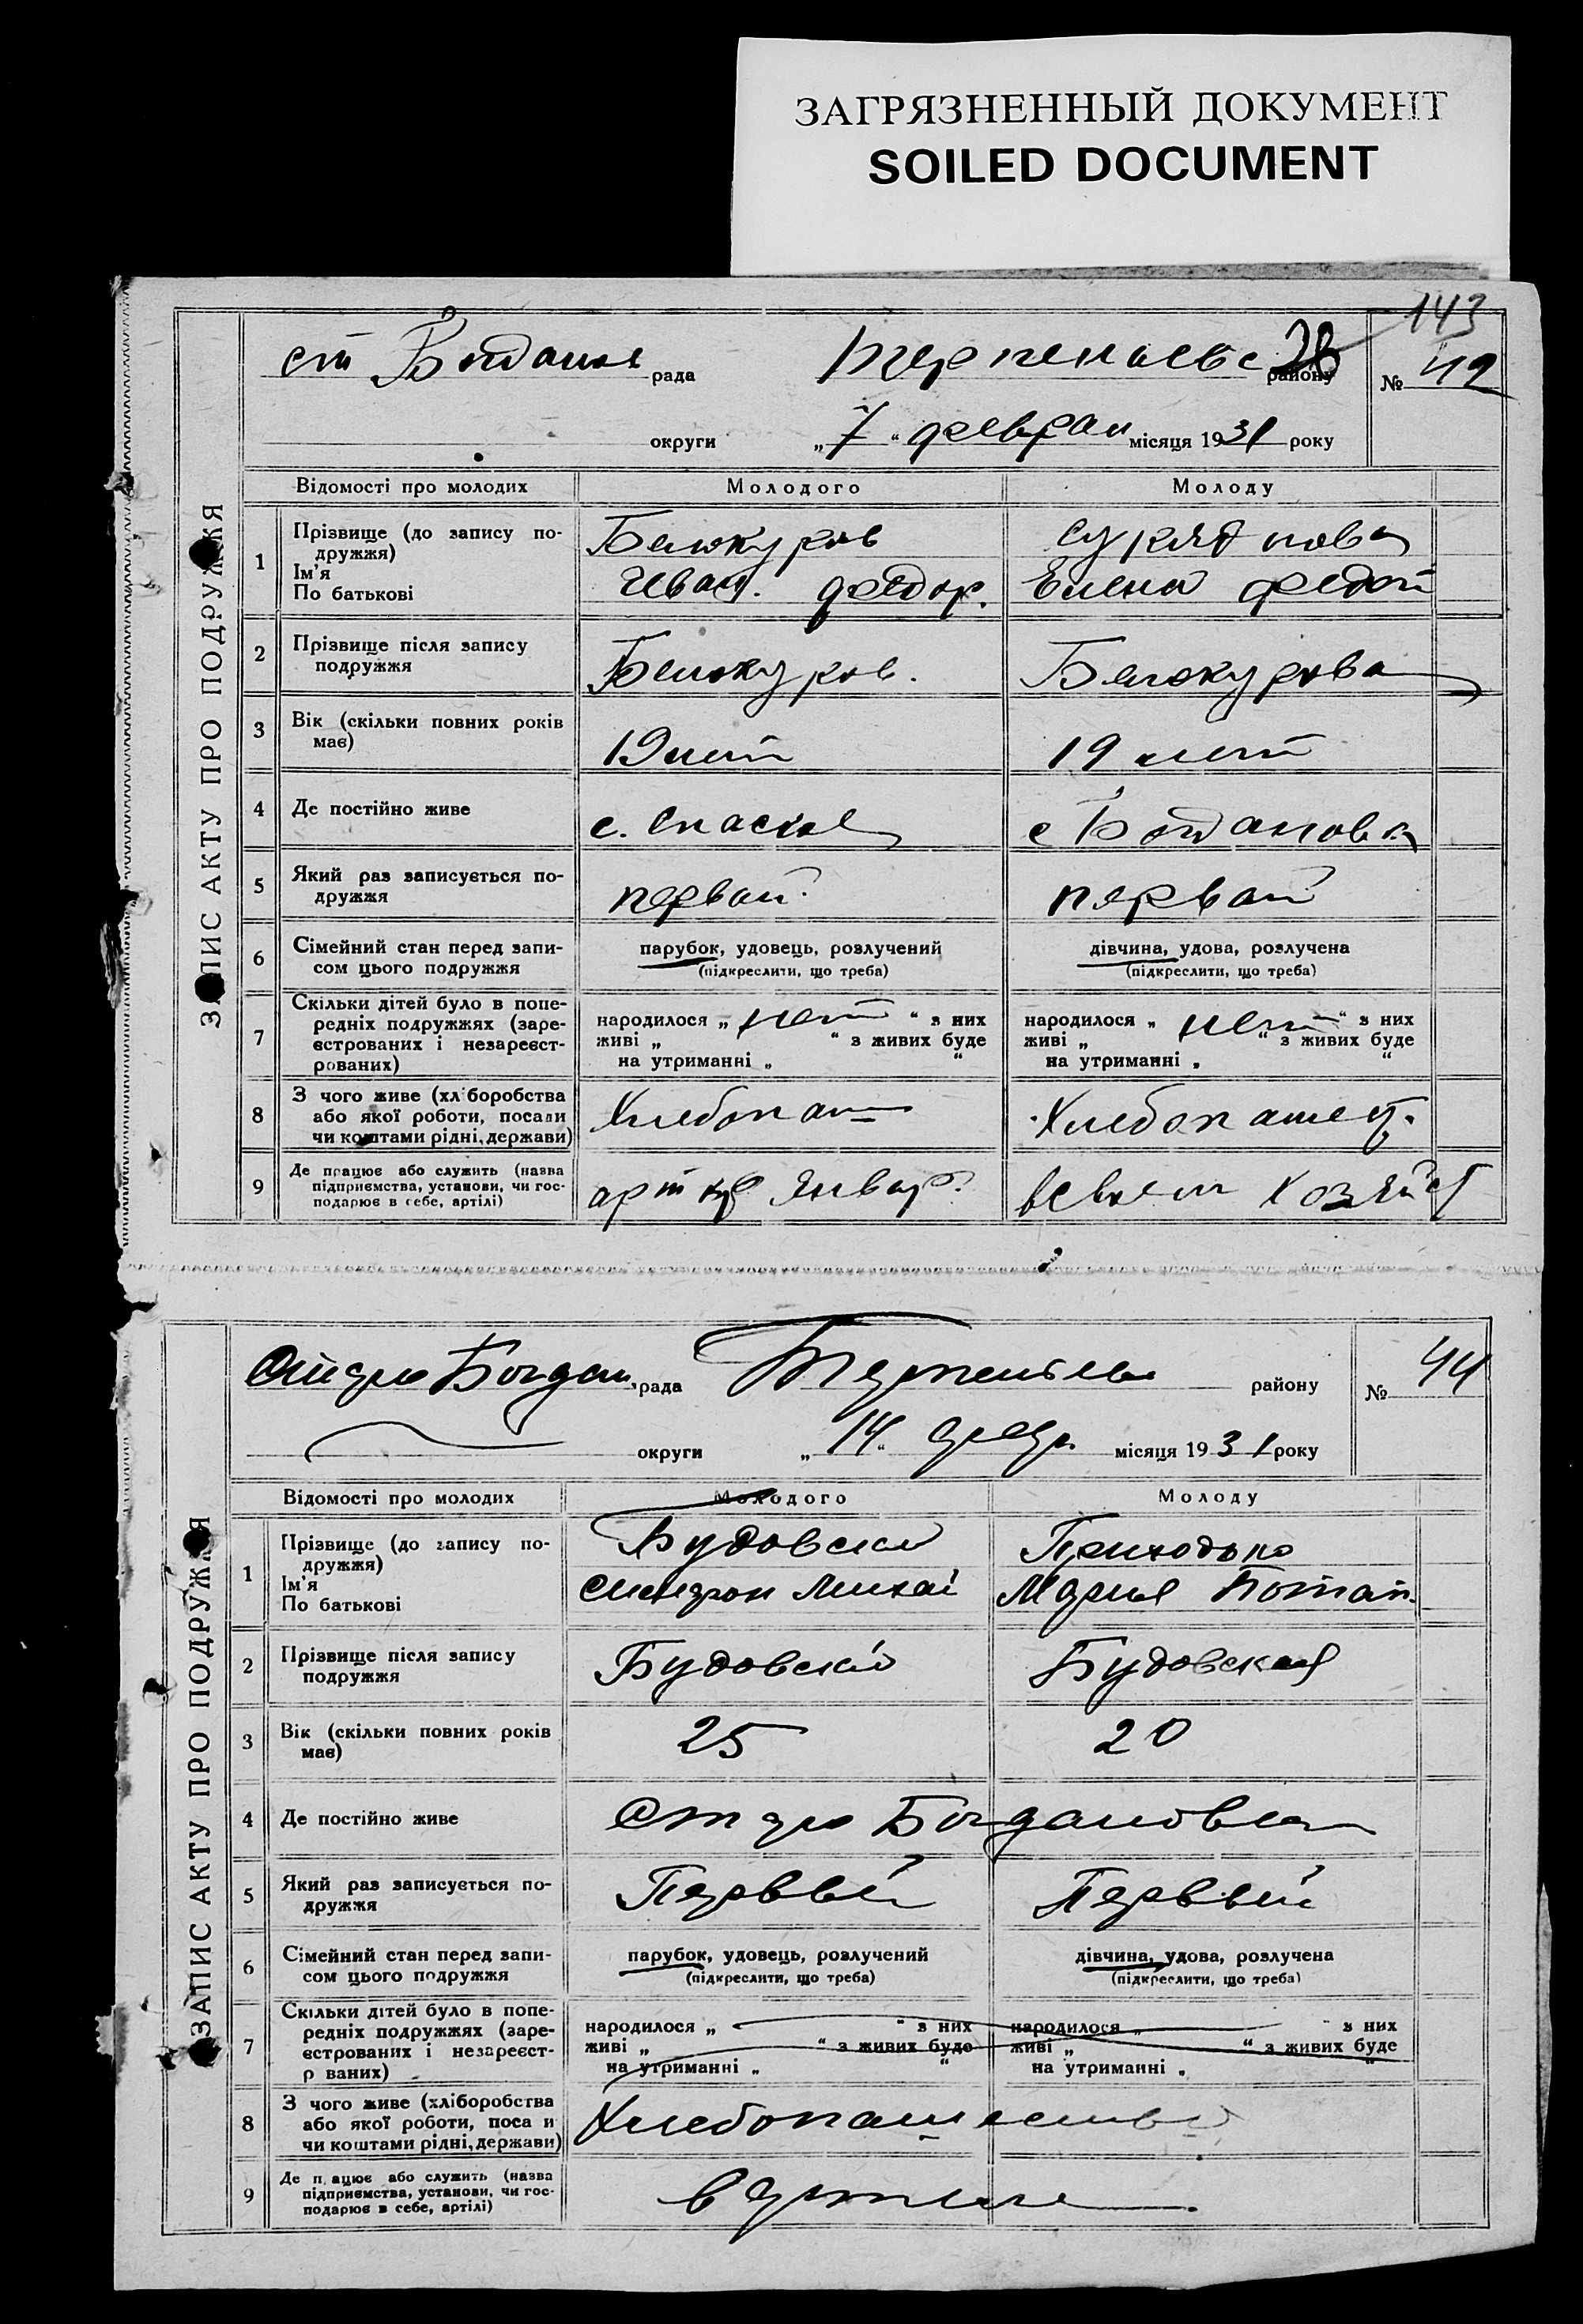 ЗАГРЯЗНЕННЫЙ ДОКУМЕНТ
SOILED DOCUMENT
143
ЗАПИС АКТУ ПРО ПОДРУЖЖЯ
ст рада району № 42
округи „7“ феврал місяця 1931 року
Відомості про молодих Молодого Молоду
1 Прізвище (до запису по-
дружжя)
Ім'я
По батькові
Белокуров
Иван. Федор.
Елена Федот
2 Прізвище після запису
подружжя
Белокуров.
Белокурова
3 Вік (скільки повних років
має)
19 лет 19 лет
4 Де постійно живе
с. Спаское с Богдановка
5 Який раз записується по-
дружжя
первый первый
6 Сімейний стан перед запи-
сом цього подружжя
парубок, удовець, розлучений
(підкреслити, що треба)
дівчина, удова, розлучена
(підкреслити, що треба)
7 Скільки дітей було в попе-
редніх подружжях (заре-
єстрованих і незареєст-
рованих)
народилося „ нет “ з них
живі „ “ з живих буде
на утриманні „ “
народилося „ нет “ з них
живі „ “ з живих буде
на утриманні „ “
8 З чого живе (хліборобства
або якої роботи, посади
чи коштами рідні, держави)
Хлебопаш Хлебопашец.
9 Де працює або служить (назва
підприємства, установи, чи гос-
подарює в себе, артілі)
арт Январ.
в своем хозяйст
ЗАПИС АКТУ ПРО ПОДРУЖЖЯ
Старо Богдан. рада району № 44
округи „14“ февр. місяця 1931 року
Відомості про молодих Молодого Молоду
1 Прізвище (до запису по-
дружжя)
Ім'я
По батькові
Будовский
Михаи
Приходько
Мария Потап.
2 Прізвище після запису
подружжя
Будовский Будовская
3 Вік (скільки повних років
має)
25 20
4 Де постійно живе
Старо Богдановка
5 Який раз записується по-
дружжя
Первый Первый
6 Сімейний стан перед запи-
сом цього подружжя
парубок, удовець, розлучений
(підкреслити, що треба)
дівчина, удова, розлучена
(підкреслити, що треба)
7 Скільки дітей було в попе-
редніх подружжях (заре-
єстрованих і незареєст-
р ваних)
народилося „ “ з них
живі „ “ з живих буде
на утриманні „ “
народилося „ з них
живі „ “ з живих буде
на утриманні „ “
8 З чого живе (хліборобства
або якої роботи, поса и
чи коштами рідні, держави)
Хлебопашество
9 Де п ацює або служить (назва
підприємства, установи, чи гос-
подарює в себе, артілі)
в артели